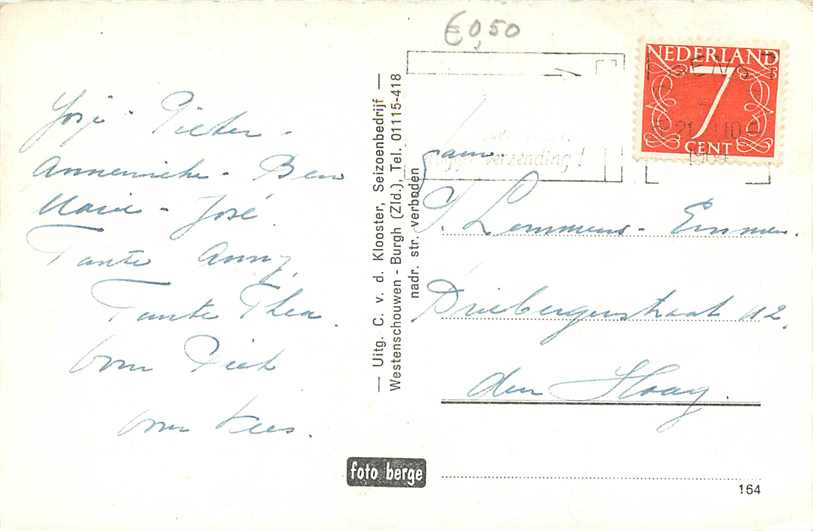 € 0,50
Josje - Pieter -
Annemieke - Ben
Marie - José
Tante Anny
Tante Thea
Oom Piet
Oom Kees.
— Uitg. C. v. d. Klooster, Seizoenbedrijf —
Westenschouwen - Burgh (Zld.), Tel. 01115-418
nadr. str. verboden
foto berge
verzending!
NEDERLAND
7
CENT
Fam.
J. Lemmens - Emmen.
Driebergenstraat 112.
den Haag.
164